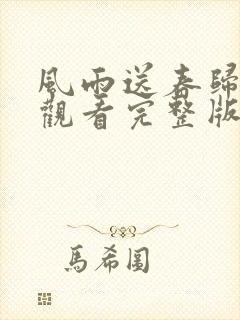 風雨送春歸
觀看完整版
馬希圓